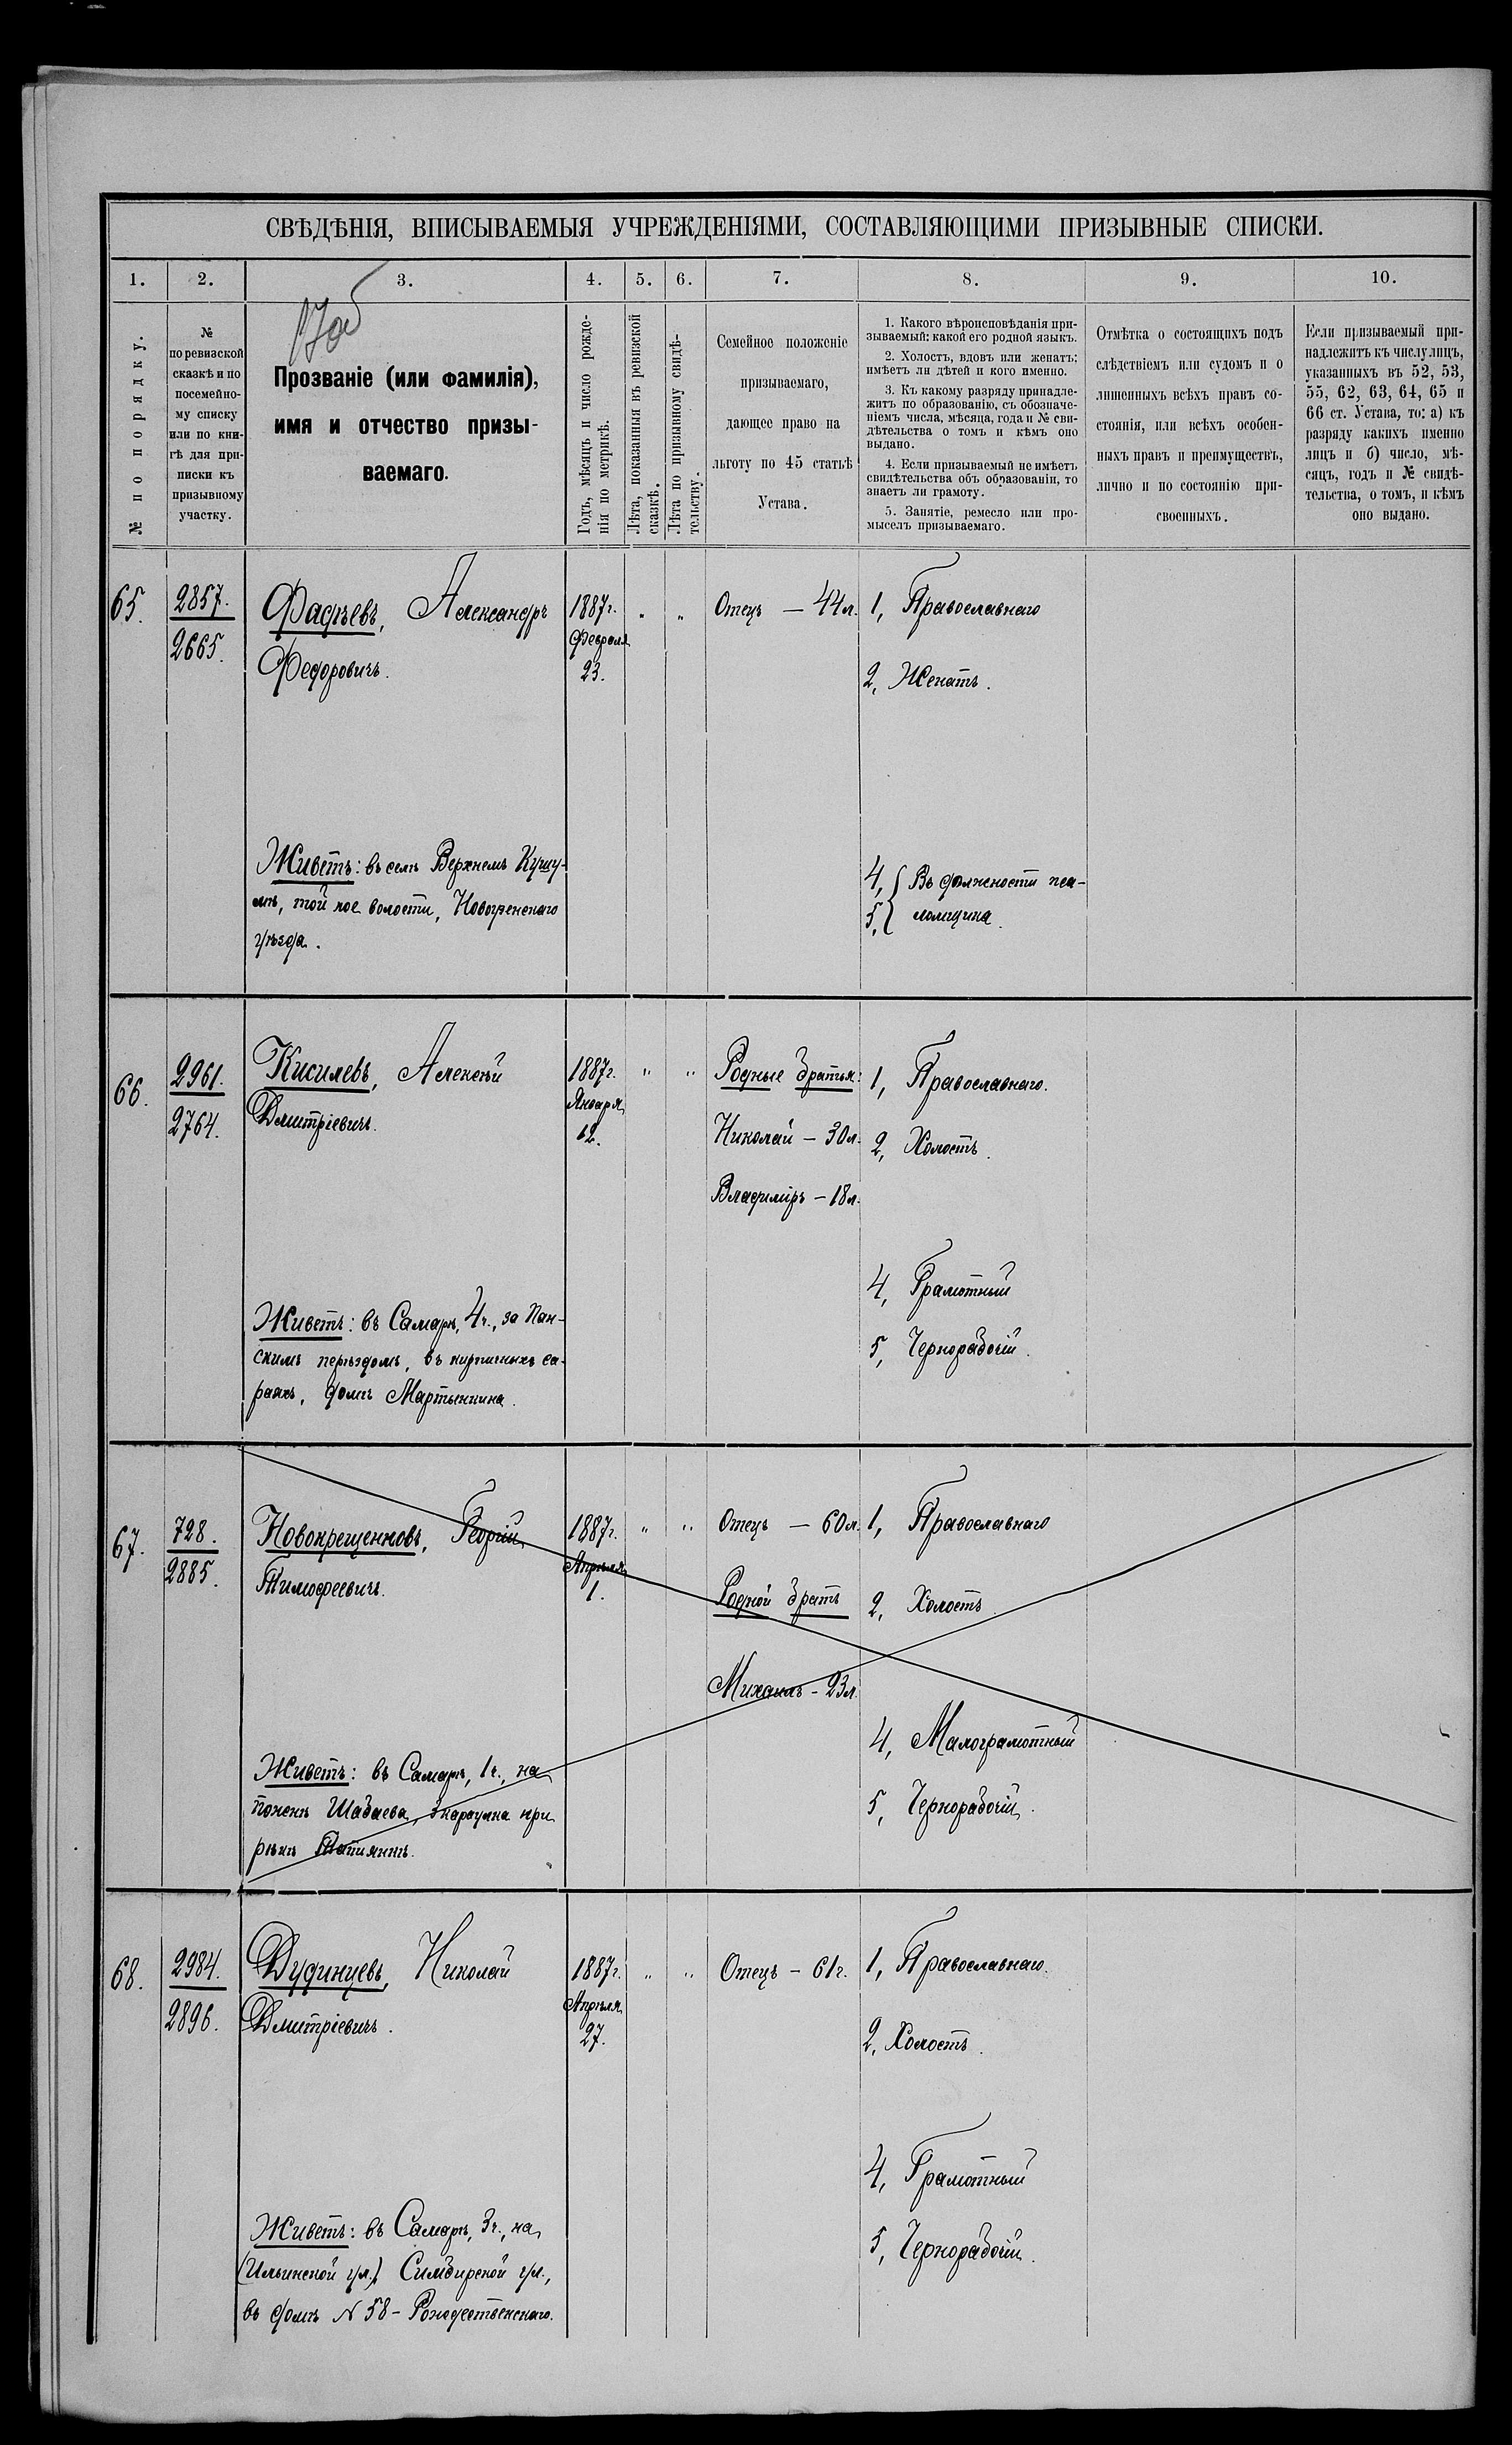 СВѢДѢНІЯ, ВПИСЫВАЕМЫЯ УЧРЕЖДЕНІЯМИ, СОСТАВЛЯЮЩИМИ ПРИЗЫВНЫЕ СПИСКИ.
1. 2. 3. 4. 5. 6. 7. 8. 9. 10.
№ по порядку.
№
по ревизской
сказкѣ и по
посемейно-
му списку
или по кни-
гѣ для при-
писки къ
призывному
участку.
Прозваніе (или фамилія),
имя и отчество призы-
ваемаго.
Годъ, мѣсяцъ и число рожде-
нія по метрикѣ.
Лѣта, показанныя въ ревизской
сказкѣ.
Лѣта по призывному свидѣ-
тельству.
Семейное положеніе
призываемаго,
дающее право на
льготу по 45 статьѣ
Устава.
1. Какого вѣроисповѣданія при-
зываемый: какой его родной языкъ.
2. Холостъ, вдовъ или женатъ;
имѣетъ ли дѣтей и кого именно.
3. Къ какому разряду принадле-
житъ по образованію, съ обозначе-
ніемъ числа, мѣсяца, года и № сви-
дѣтельства о томъ и кѣмъ оно
выдано.
4. Если призываемый не имѣетъ
свидѣтельства объ образованіи, то
знаетъ ли грамоту.
5. Занятіе, ремесло или про-
мыселъ призываемаго.
Отмѣтка о состоящихъ подъ
слѣдствіемъ или судомъ и о
лишенныхъ всѣхъ правъ со-
стоянія, или всѣхъ особен-
ныхъ правъ и преимуществъ,
лично и по состоянію при-
своенныхъ.
Если призываемый при-
надлежитъ къ числу лицъ,
указанныхъ въ 52, 53,
55, 62, 63, 64, 65 и
66 ст. Устава, то: а) къ
разряду какихъ именно
лицъ и б) число, мѣ-
сяцъ, годъ и № свидѣ-
тельства, о томъ, и кѣмъ
оно выдано.
65. 2857. Фадѣевъ, Александръ 1887г. " " Отецъ — 44л. 1, Православнаго
2665. Федоровичъ. Февраля 23. 2, Женатъ.
Живетъ: въ селѣ Верхнемъ Кушу-
лѣ, той же волости, Новоузенскаго
уѣзда.
4, 5, { Въ должности пса-
ломщика.
66. 2961. Кисилевъ, Алексѣй 1887г. " " Родные братья: 1, Православнаго.
2764. Дмитріевичъ. Января 12. Николай — 30л. 2, Холостъ.
Владиміръ — 18л.
4, Грамотный
5, Чернорабочій.
Живетъ: въ Самарѣ, 4ч., за Пан-
скимъ переѣздомъ, въ кирпичныхъ са-
раяхъ, домъ Мартынкина.
67. 728. Новокрещенновъ, Георгій 1887г. " " Отецъ — 60л. 1, Православнаго
2885. Тимофеевичъ. Апрѣля 1. Родной братъ 2, Холостъ
Михаилъ — 23л.
4, Малограмотный
5, Чернорабочій.
Живетъ: въ Самарѣ, 1ч., на
Шабаева, караулка при
рѣкѣ
68. 2984. Дудинцевъ, Николай 1887г. " " Отецъ — 61г. 1, Православнаго.
2896. Дмитріевичъ. Апрѣля 27. 2, Холостъ.
4, Грамотный
5, Чернорабочій.
Живетъ: въ Самарѣ, 3ч., на
(Ильинской ул.) Симбирской ул.,
въ домѣ N 58 - Рождественскаго.